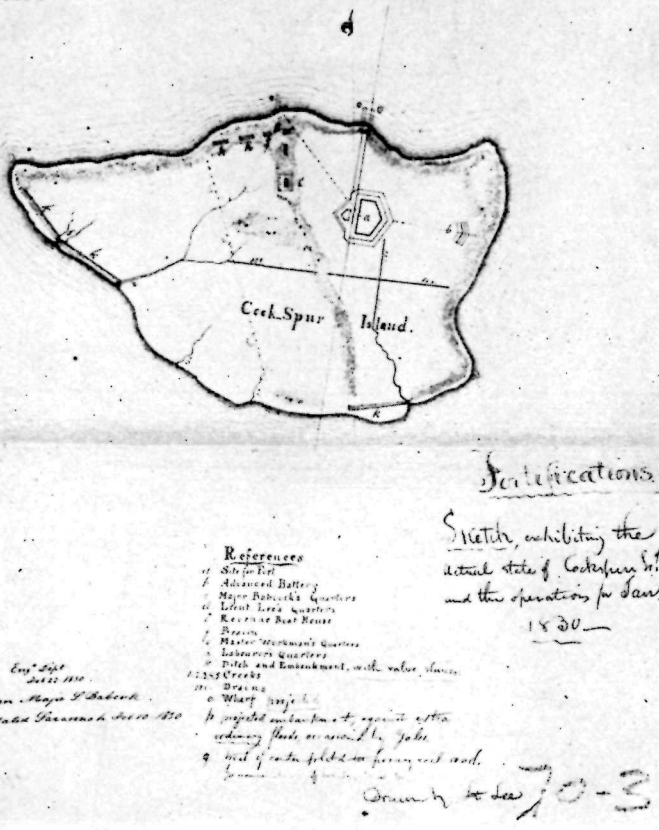 Cock Spur Island.
k
k
a
b
m
k
k
Fortifications.
Sketch, exhibiting the
actual state of Cockspur Isl
and the operations for Jan
1830
References
a Site for Fort
b Advanced Battery
c Major Babcock's Quarters
d Lieut Lee's Quarters
e Revenue Boat House
f Beacon
Master Workman's Quarters
Labourer's Quarters
k Ditch and Embankment, with valve sluices
1.2.3.4.5 Creeks
m Drains
o Wharf projected
p projected embankment, against extra
ordinary floods, occasioned by Gales
q
Engr Dept
1830.
Majr S. Babcock
dated Savannah 1830
Drawn by Lt Lee
70-3